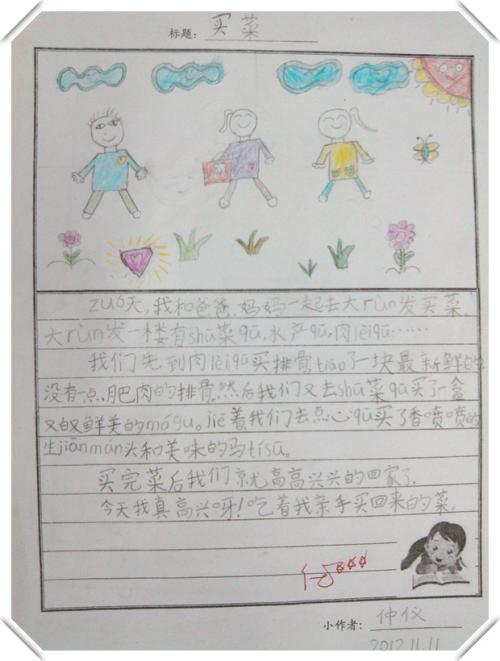 标题：买菜
zuó天，我和爸爸、妈妈一起去大rùn发买菜。
大rùn发一楼有shū菜qū，水产qū，肉lèiqū……
我们先到肉lèiqū买排骨，tiāo了一块最新鲜的
没有一点肥肉的排骨，然后我们又去shū菜qū买了一盒
又白又鲜美的mógu。jiē着我们去点心qū买了香喷喷的
生jiānmán头和美味的马tísū。
买完菜后我们就高高兴兴的回家了。
今天我真高兴呀！吃着我亲手买回来的菜。
小作者：仲仪
2012.11.11